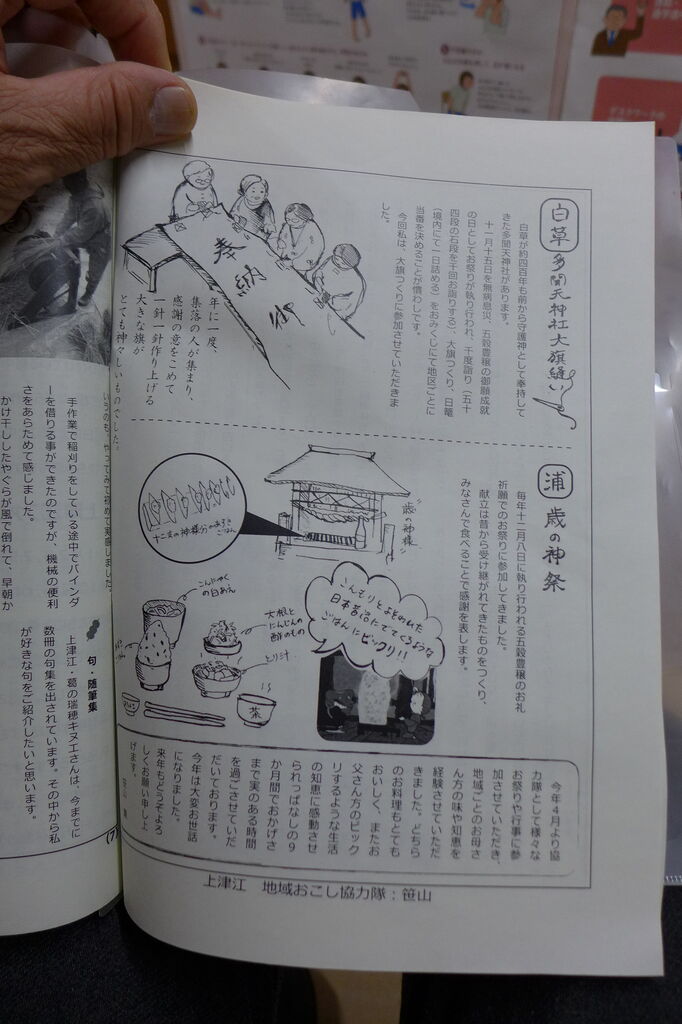 白草 多聞天神社大旗縫い
白草が約四百年も前から守護神として奉持して
きた多聞天神社があります。
十一月十五日を無病息災、五穀豊穣の御願成就
の日としてお祭りが執り行われ、千度詣り(五十
四段の石段を千回お詣りする)、大旗つくり、日籠
(境内にて一日詰める)をおみくじにて地区ごとに
当番を決めることが慣わしです。
今回私は、大旗つくりに参加させていただきま
した。
奉納御
年に一度、
集落の人が集まり、
感謝の意をこめて
一針一針作り上げる
大きな旗が
とても神々しいものでした。
浦 歳の神祭
毎年十二月八日に執り行われる五穀豊穣のお礼
祈願でのお祭りに参加してきました。
献立は昔から受け継がれてきたものをつくり、
みなさんで食べることで感謝を表します。
歳の神様
十二支の神様分のあずきごはん
こんもりとよそわれた
日本昔話にでてくるような
ごはんにビックリ!!
こんにゃく
の白あえ
大根と
にんじんの
酢のもの
とり汁
茶
今年4月より協
力隊として様々な
お祭りや行事に参
加させていただき、
地域ごとのお母さ
ん方の味や知恵を
経験させていただ
きました。どちら
のお料理もとても
おいしく、またお
父さん方のビック
リするような生活
の知恵に感動させ
られっぱなしの9
か月間でおかげさ
まで実のある時間
を過ごさせていた
だいております。
今年は大変お世話
になりました。
来年もどうぞよろ
しくお願い申し上
げます。
上津江 地域おこし協力隊:笹山
いうのも、やってみて初めて実感しました。
手作業で稲刈りをしている途中でバインダ
ーを借りる事ができたのですが、機械の便利
さをあらためて感じました。
かけ干ししたやぐらが風で倒れて、早朝か
句・随筆集
上津江・葛の瑞穂キヌエさんは、今までに
数冊の句集を出されています。その中から私
が好きな句をご紹介したいと思います。